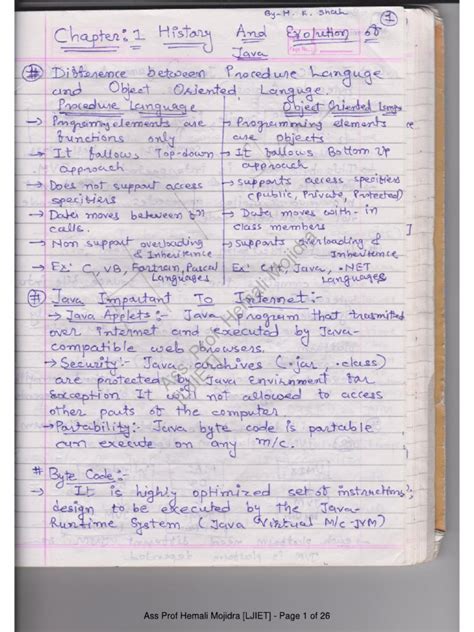 By-H. K. Shah
1
Chapter: 1 History And Evolution of Java
# Difference between Procedure Languge
and Object Oriented Languge.
Procedure Language Object Oriented Langu
→ Programming elements are → Programming elements
functions only are objects
→ It follows, Top-down → It follows Bottom Up
approach approach
→ Does not support access → supports access specifiers
specifiers (public, Private, Protected)
→ Data moves between fn → Data moves with-in
calls. class members
→ Non support overloading → supports overloading &
& Inheritence Inheritence
→ Ex: C, VB, Fortran, Pascal Ex: C++, Java, .NET
Languages Languages
# Java Important To Internet:-
→ Java Applets:- Java program that trasmitted
over internet and executed by Java-
compatible web browsers.
→ Security:- Java archives (.jar, .class)
are protected by Java Envirnment for
exception It is not allowed to access
other parts of the computer
→ Portability:- Java byte code is portable
can execute on any m/c.
# Byte Code:-
→ It is highly optimized set of instructions,
design to be executed by the Java-
Runtime System (Java Virtual M/c-JVM)
Ass Prof Hemali Mojidra
[LJIET]
Ass Prof Hemali Mojidra [LJIET] - Page 1 of 26